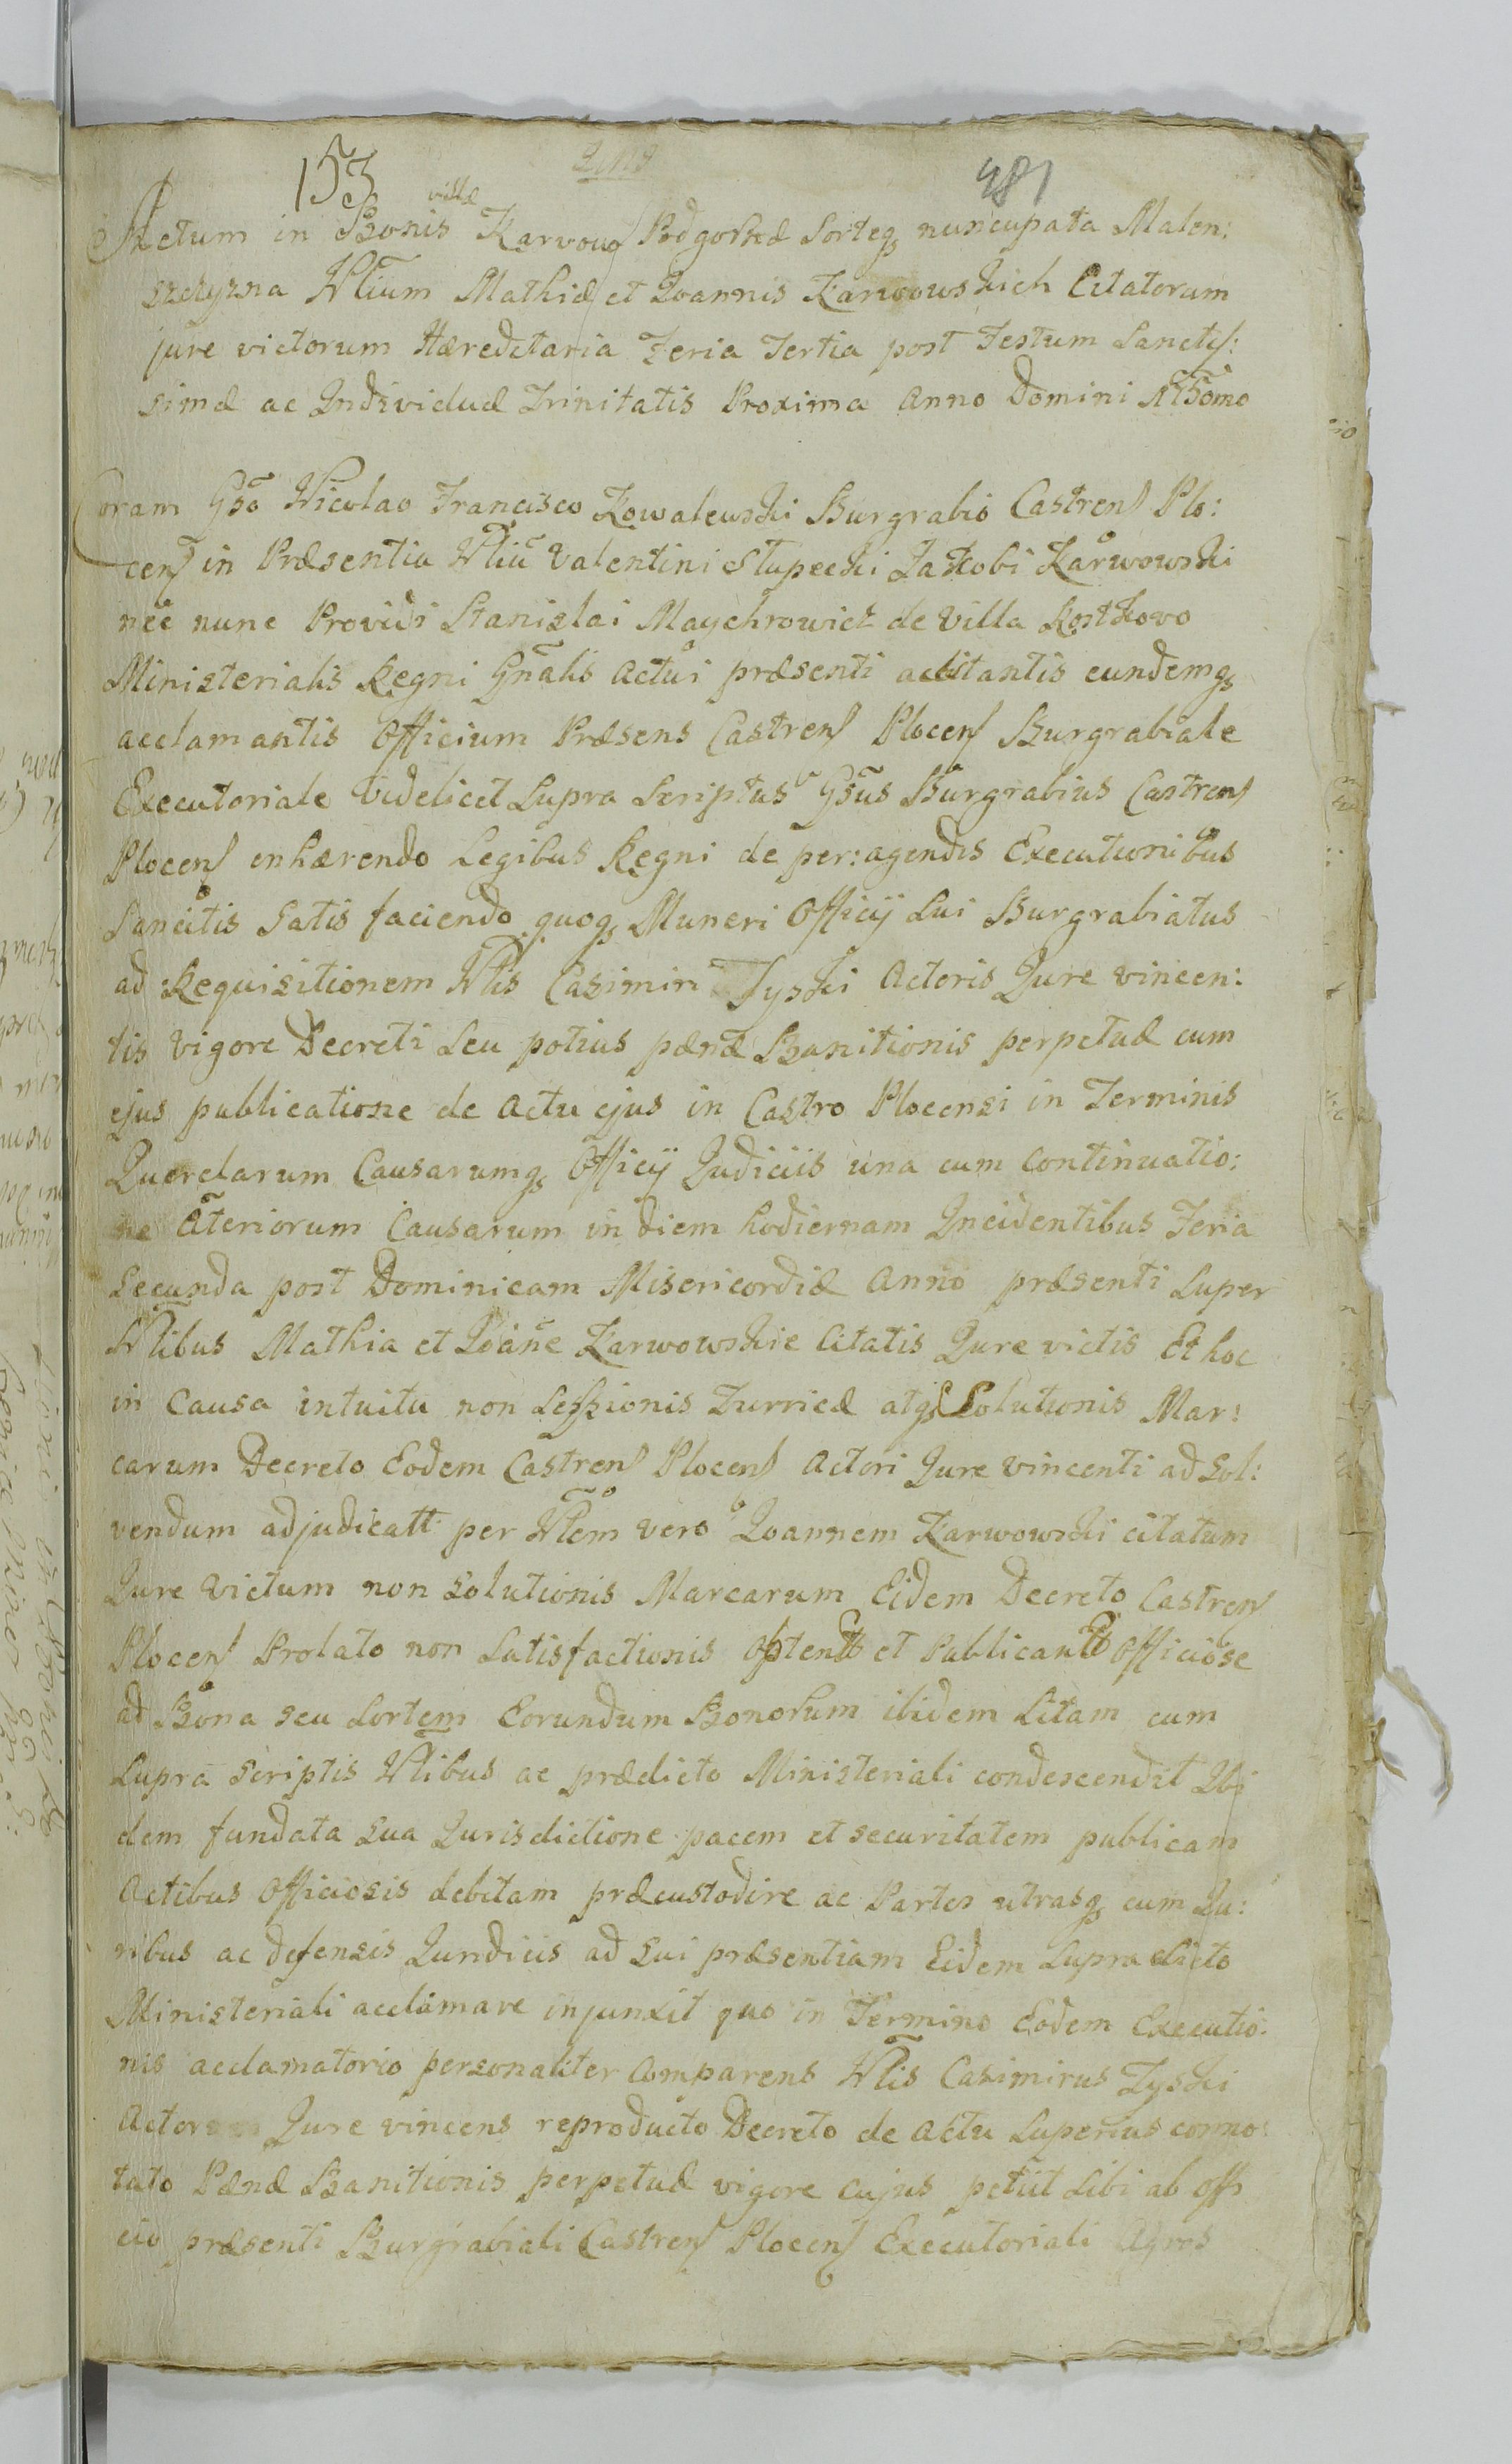 153 481
villæ
Actum in Bonis Karwowo Podgorne Sorteq nuncupata Maten:
szczyzna Nlium Mathiæ et Joannis Karwowskich Citatorum
jure victorum Hæreditaria Feria Tertia post Festum Sanctis:
simæ ac Individuæ Trinitatis Proxima Anno Domini
Coram Gso Nicolao Francisco Kowalewski Burgrabio Castren Plo:
cen in Præsentia Nliu Valentini Słupecki Jakobi Karwowski
nec nunc Providi Stanislai Maychrowicz de Villa Kostkovo
Ministerialis Regni Gnalis Actui præsenti adstantis eundemq
acclamantis Officium Præsens Castren Plocen Burgrabiale
Executoriale Videlicet Supra Scriptus Gsus Burgrabius Castren
Plocen enhærendo Legibus Regni de per:agendis Executionibus
Sancitis Satis faciendo quoq Muneri Officij Sui Burgrabiatus
ad Requisitionem Nlis Casimiri Zyski Actoris Jure vincen:
tis vigore Decreti Seu potius pænæ Banitionis perpetuæ cum
ejus publicatione de Actu ejus in Castro Plocensi in Terminis
Querelarum Causarumq Officij Judiciis una cum Continuatio:
ne Ateriorum Causarum in diem hodiernam Incidentibus Feria
Secunda post Dominicam Misericordiæ Anno præsenti Super
Nlibus Mathia et Joane Karwowskie Citatis Jure victis Et hoc
in Causa intuitu non Sessionis Turricæ atq Solutionis Mar:
carum Decreto Eodem Castren Plocen Actori Jure vincenti ad Sol:
vendum adjudicatt per Nlem vero Joannem Karwowski citatum
Jure Victum non Solutionis Marcarum Eidem Decreto Castren
Plocen Prolato non Satisfactionis Optent et Publicant Officiose
ad Bona seu Sortem Eorundum Bonorum ibidem Sitam cum
Supra Scriptis Nlibus ac prædicto Ministeriali condescendit Ibi
dem fundata Sua Jurisdictione pacem et securitatem publicam
Actibus Officiosis debitam præcustodire ac Partes utrasq cum Ju:
ribus ac defensis Juridiis ad Sui præsentiam Eidem Supra dicto
Ministeriali acclamare injunxit quo in Termino Eodem Executio:
nis acclamatorio personaliter Comparens Nlis Casimirus Zyski
Actor Jure vincens reproducto Decreto de Actu Superius conno:
tato Pænæ Banitionis perpetuæ vigore cujus petiit Sibi ab Offi
cio præsenti Burgrabiali Castren Plocen Executoriali Agros